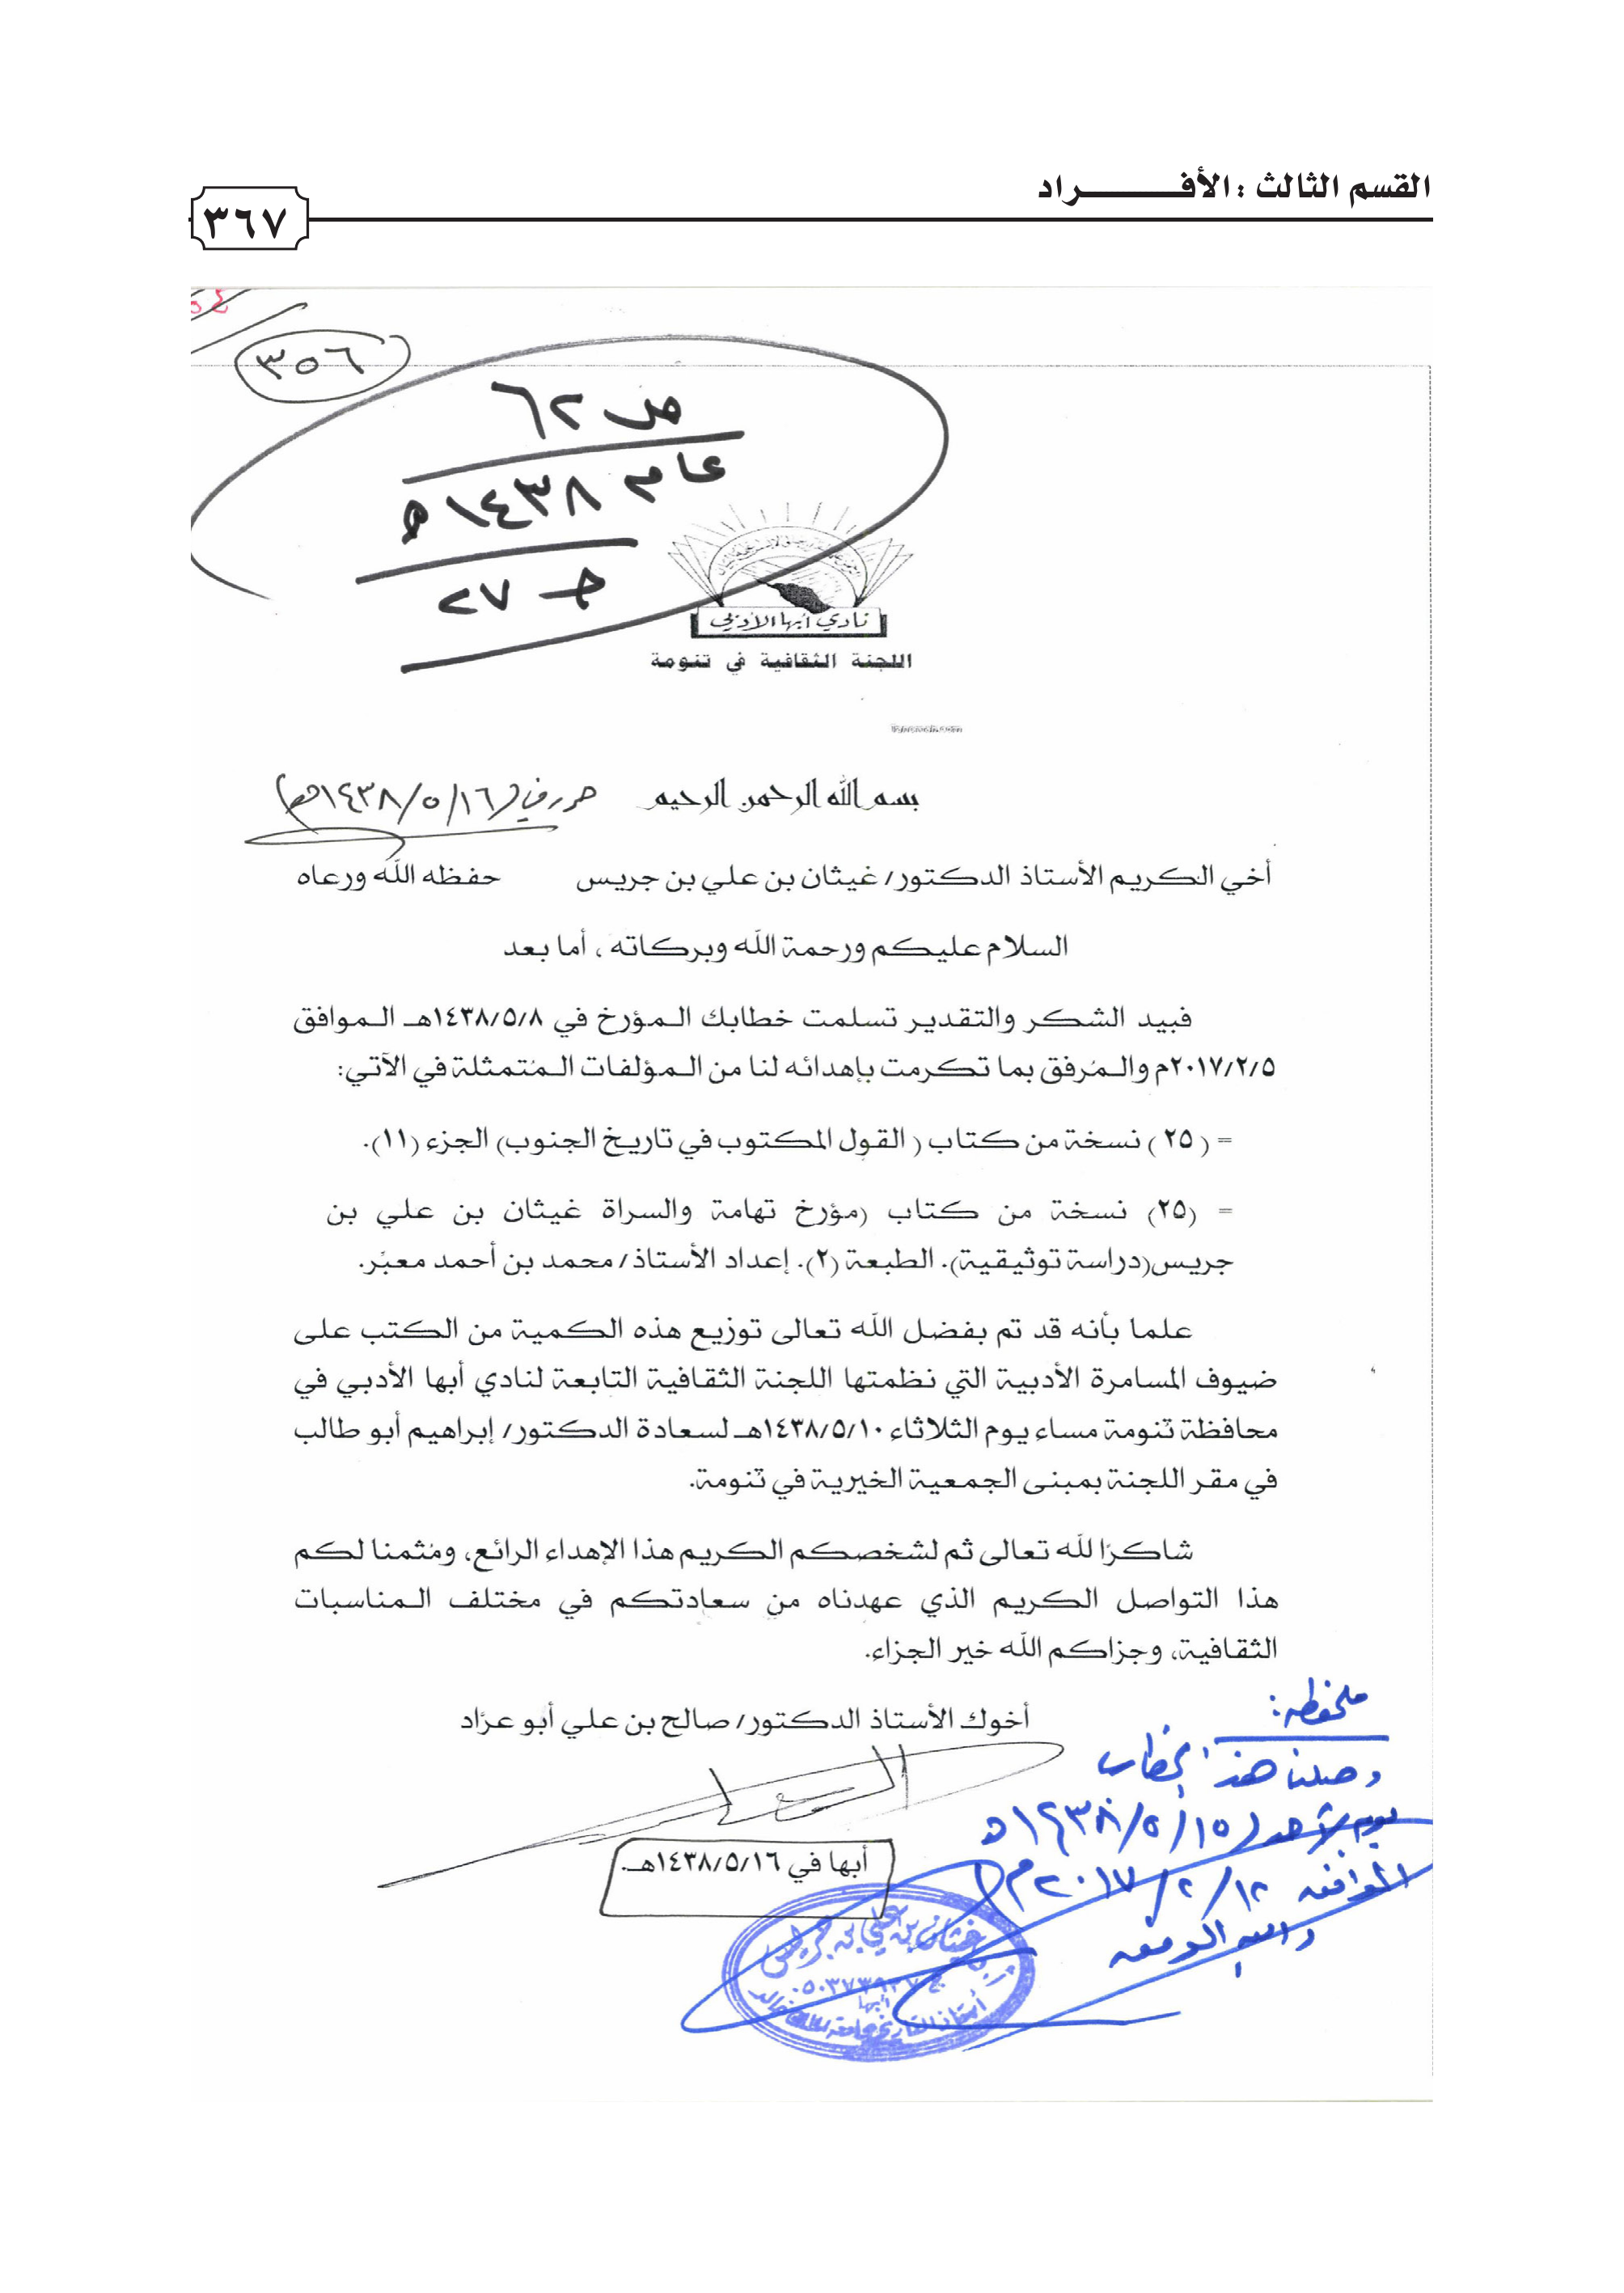 القسم الثالث : الأفـــــــراد
٣٦٧
٣٥٦
ص ٦٢
عام ١٤٣٨هـ
جـ ٢٧
نادي أبها الأدبي
اللجنة الثقافية في تنومة
بسم الله الرحمن الرحيم
حرر في (١٤٣٨/٥/١٦هـ)
أخي الكريم الأستاذ الدكتور/ غيثان بن علي بن جريس حفظه الله ورعاه
السلام عليكم ورحمة الله وبركاته ، أما بعد
فبيد الشكر والتقدير تسلمت خطابك المؤرخ في ١٤٣٨/٥/٨هـ الموافق
٢٠١٧/٢/٥م والمُرفق بما تكرمت بإهدائه لنا من المؤلفات المُتمثلة في الآتي:
= (٢٥) نسخة من كتاب ( القول المكتوب في تاريخ الجنوب) الجزء (١١).
= (٢٥) نسخة من كتاب (مؤرخ تهامة والسراة غيثان بن علي بن
جريس(دراسة توثيقية). الطبعة (٢). إعداد الأستاذ/ محمد بن أحمد معبّر.
علما بأنه قد تم بفضل الله تعالى توزيع هذه الكمية من الكتب على
ضيوف المسامرة الأدبية التي نظمتها اللجنة الثقافية التابعة لنادي أبها الأدبي في
محافظة تنومة مساء يوم الثلاثاء ١٤٣٨/٥/١٠هـ لسعادة الدكتور/ إبراهيم أبو طالب
في مقر اللجنة بمبنى الجمعية الخيرية في تنومة.
شاكرًا لله تعالى ثم لشخصكم الكريم هذا الإهداء الرائع، ومُثمنا لكم
هذا التواصل الكريم الذي عهدناه من سعادتكم في مختلف المناسبات
الثقافية، وجزاكم الله خير الجزاء.
أخوك الأستاذ الدكتور/ صالح بن علي أبو عرّاد
أبها في ١٤٣٨/٥/١٦هـ.
ملحظة:
وصلنا هذا الخطاب
يوم الأحد (١٤٣٨/٥/١٥هـ
الموافق ٢٠١٧/٢/١٢م)
والله الموفق
غيثان بن علي بن جريس
أبها
أستاذ التاريخ بجامعة الملك خالد